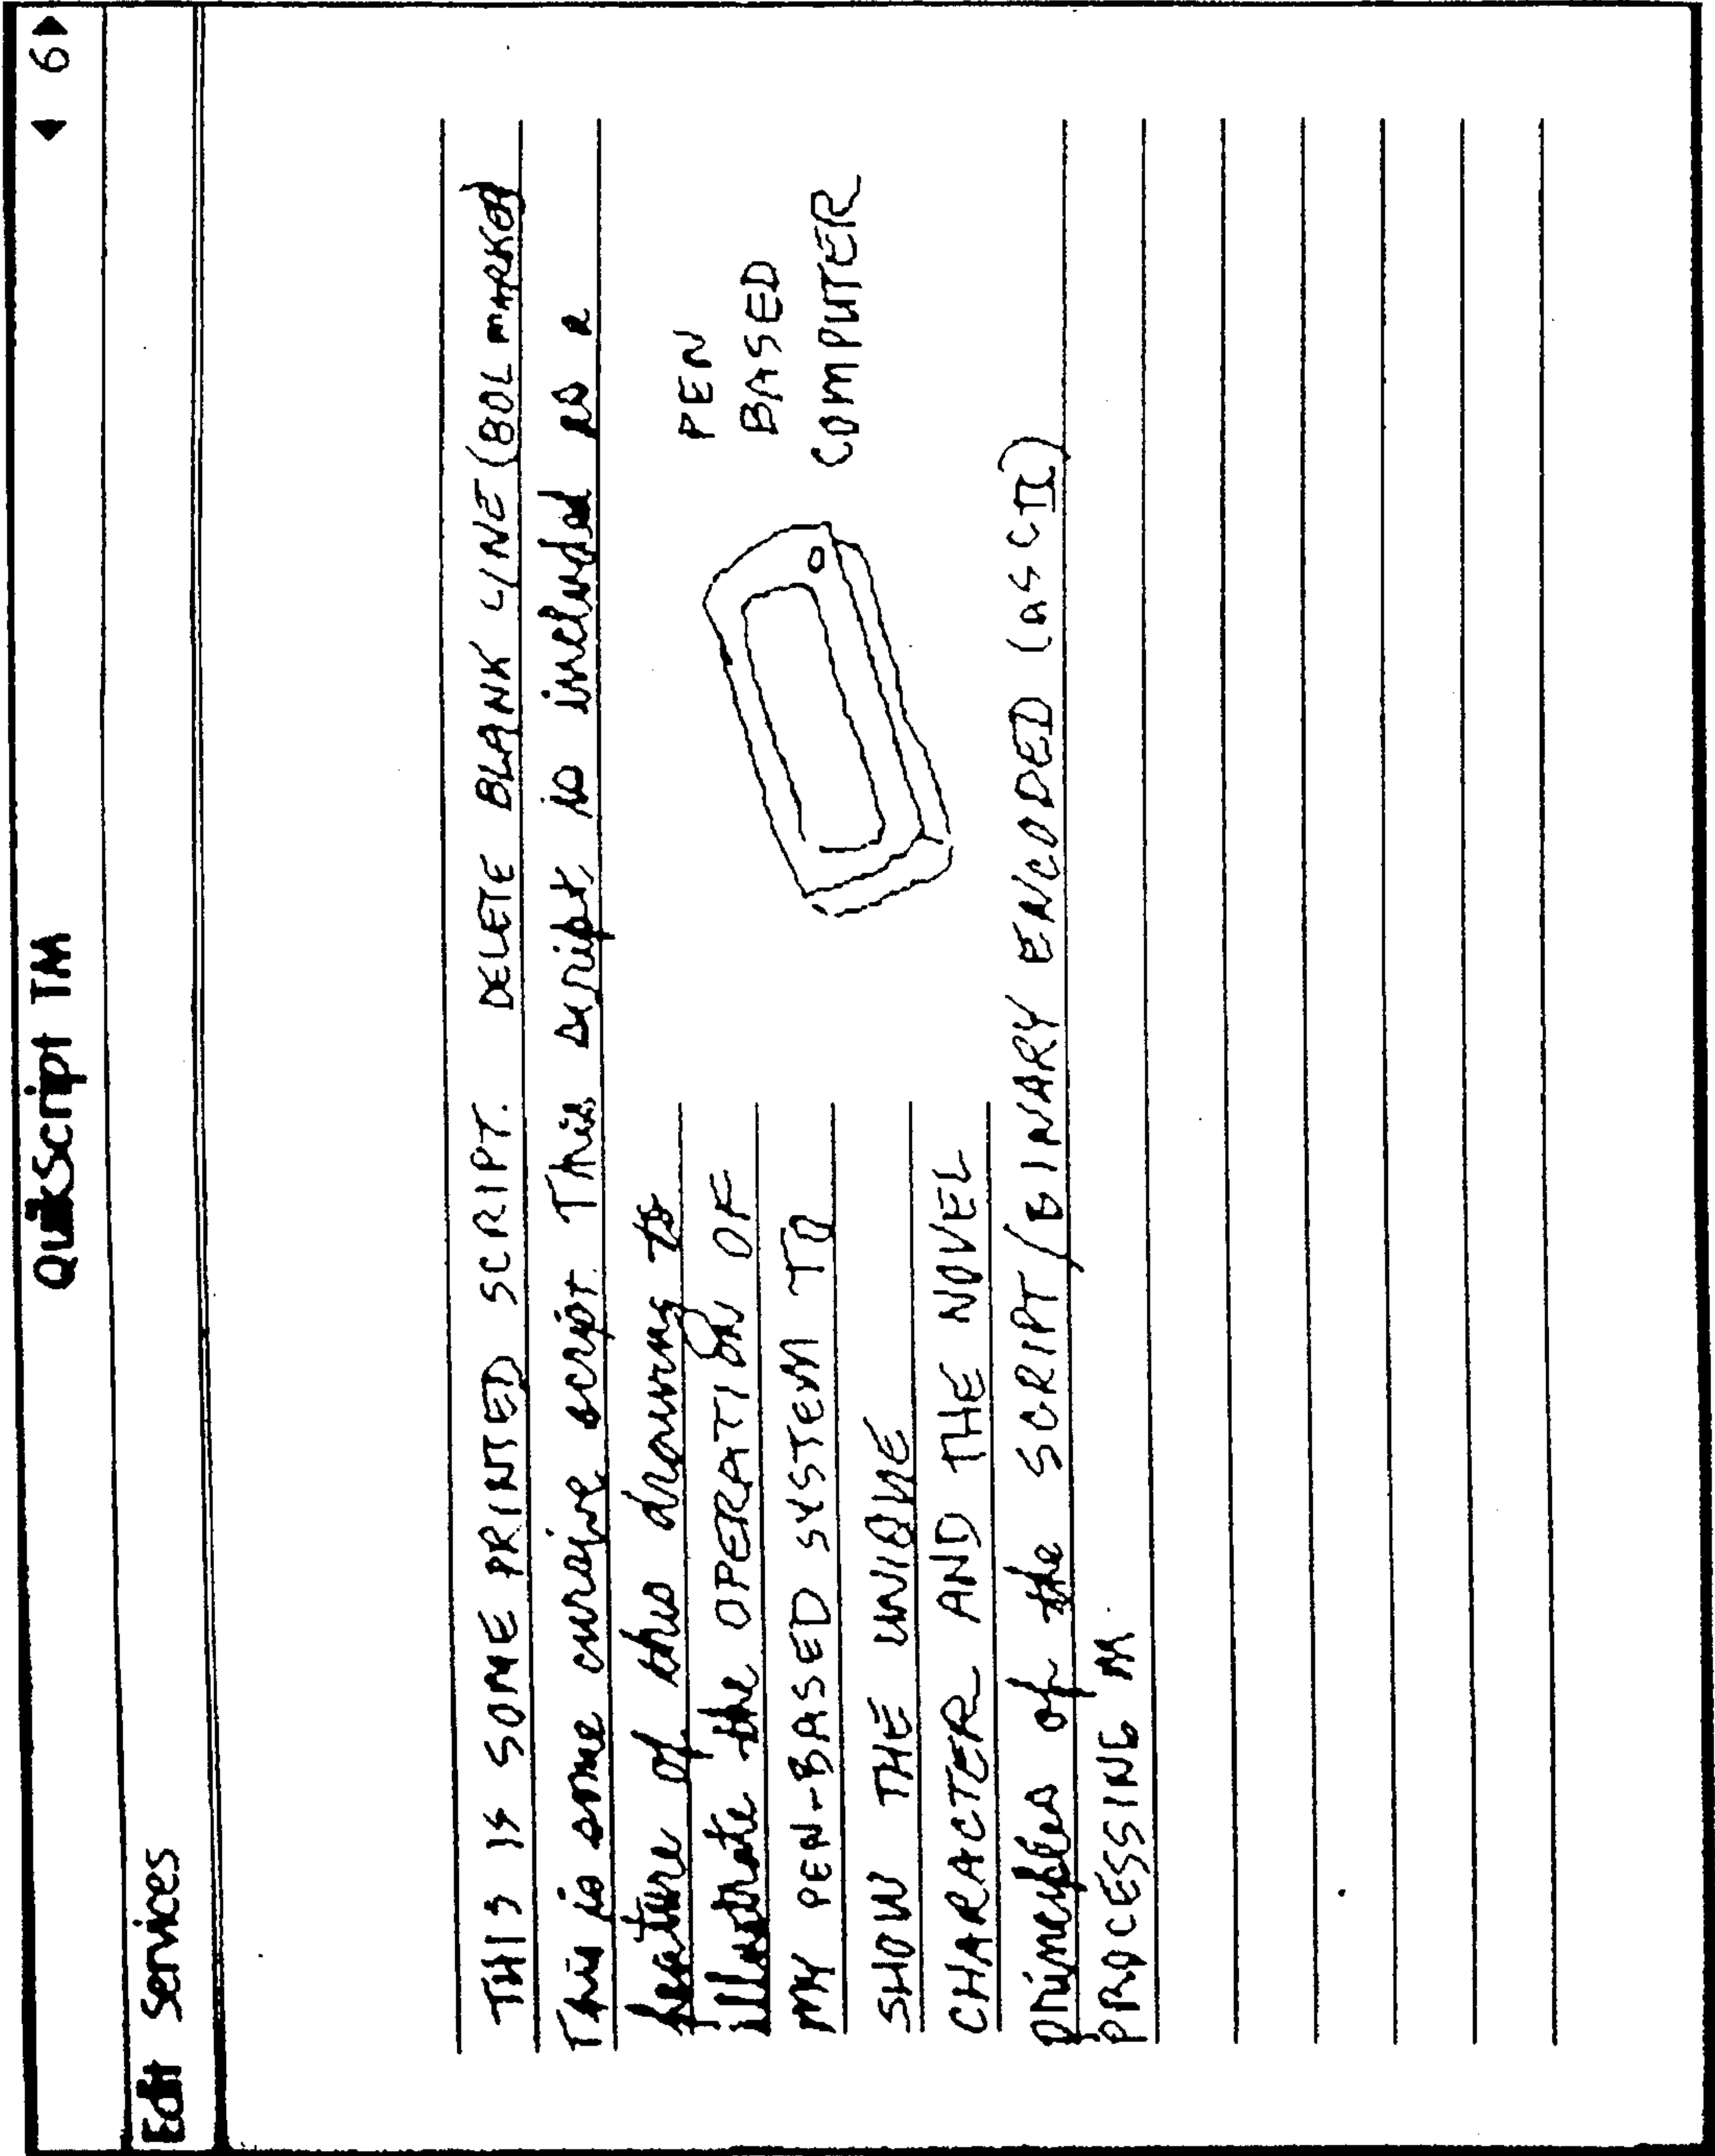 QuikScript TM
◀ 6▶
Edit Services
THIS IS SOME PRINTED SCRIPT. DELETE BLANK LINE (BOL MARKER)
This is some cursive script. This script is included as a
feature of this drawing to
illustrate the OPERATION OF
MY PEN-BASED SYSTEM TO
SHOW THE UNIQUE
CHARACTER AND THE NOVEL
principles of the SCRIPT/BINARY ENCODED (ASCII)
PROCESSING
PEN
BASED
COMPUTER